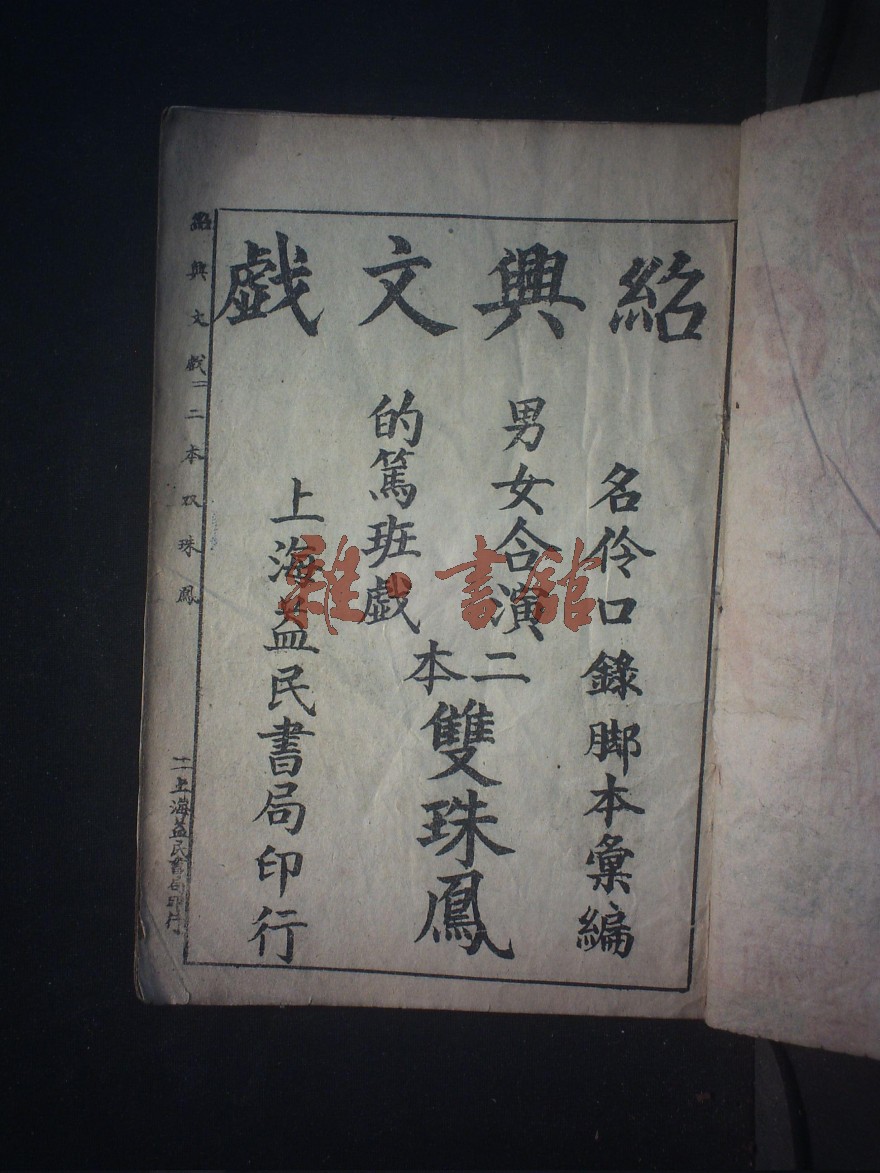 紹興文戯
名伶口錄脚本彙編
男女合演
的篤班戯
二本
雙珠鳳
上海益民書局印行
紹興文戯 二 二本双珠鳳
二 上海益民書局印行
雜·書舘